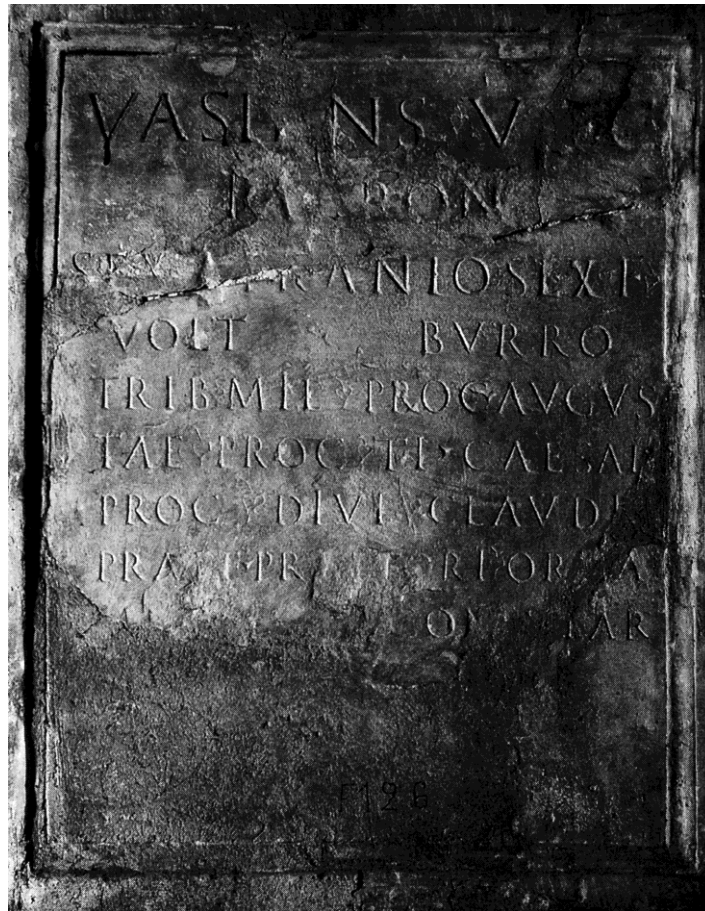 VASIENS VOC
PATRONO
SEX AFRANIO SEX F
VOLT BVRRO
TRIB MIL PROC AVGVS
TAE PROC TI CAESAR
PROC DIVI CLAVDI
PRAEF PRAETORI ORNA
CONSVLAR
F126